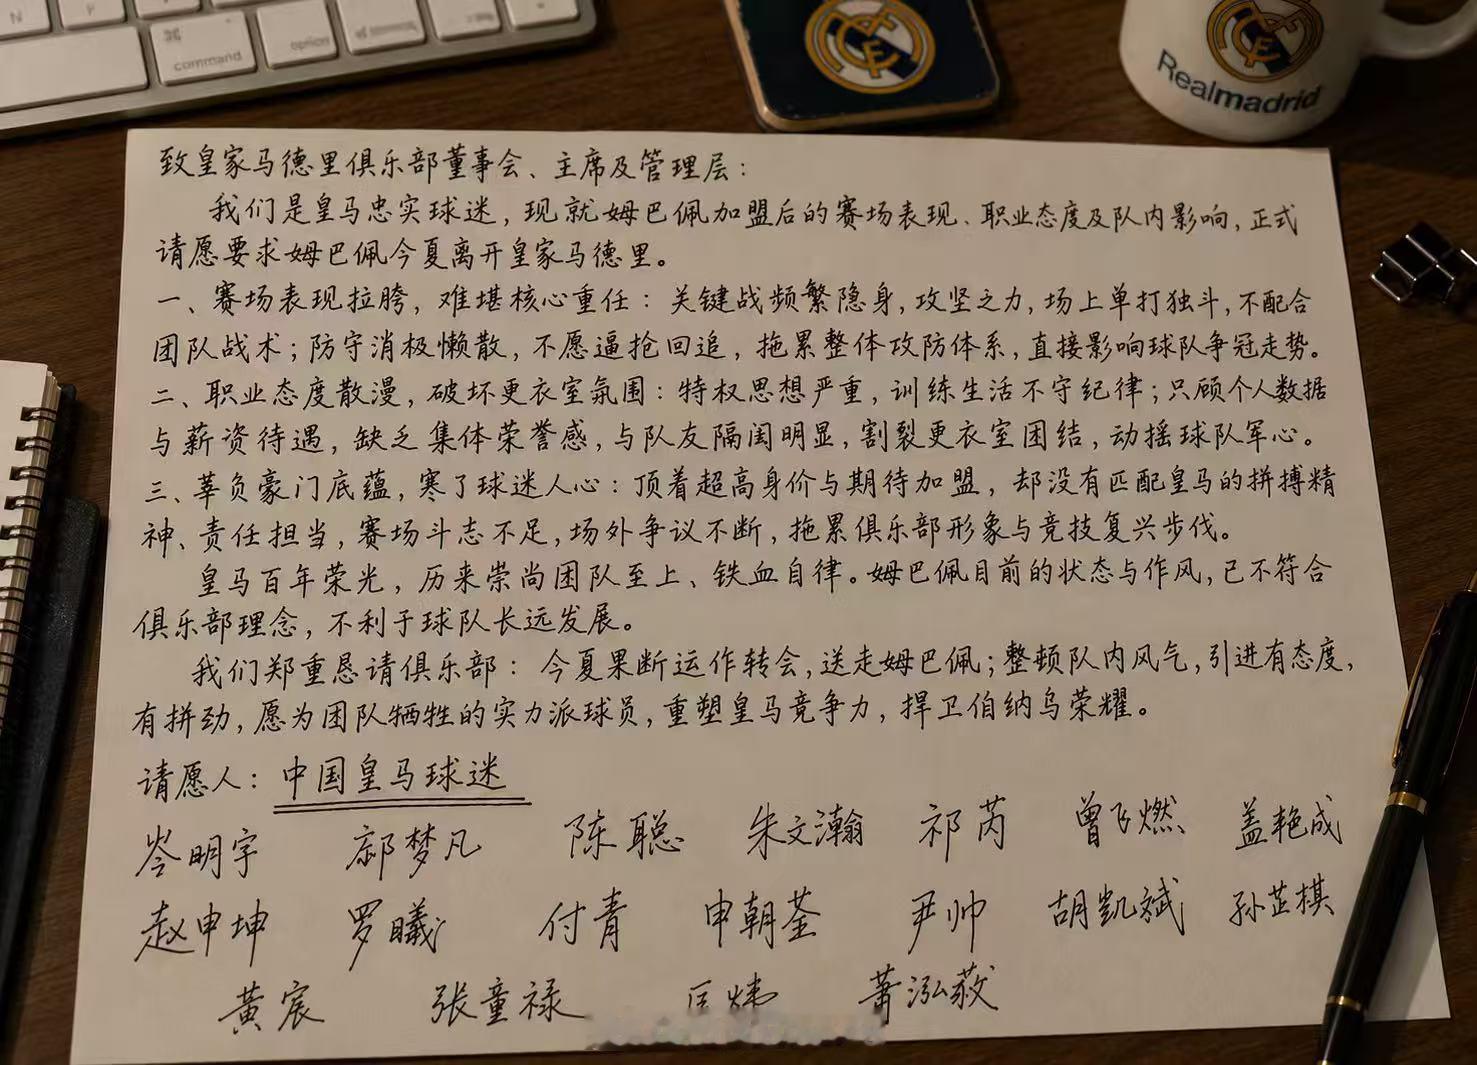 command
option
Realmadrid
致皇家马德里俱乐部董事会、主席及管理层：
我们是皇马忠实球迷，现就姆巴佩加盟后的赛场表现、职业态度及队内影响，正式
请愿要求姆巴佩今夏离开皇家马德里。
一、赛场表现拉胯，难堪核心重任：关键战频繁隐身，攻坚乏力，场上单打独斗，不配合
团队战术；防守消极懒散，不愿逼抢回追，拖累整体攻防体系，直接影响球队争冠走势。
二、职业态度散漫，破坏更衣室氛围：特权思想严重，训练生活不守纪律；只顾个人数据
与薪资待遇，缺乏集体荣誉感，与队友隔阂明显，割裂更衣室团结，动摇球队军心。
三、辜负豪门底蕴，寒了球迷人心：顶着超高身价与期待加盟，却没有匹配皇马的拼搏精
神、责任担当，赛场斗志不足，场外争议不断，拖累俱乐部形象与竞技复兴步伐。
皇马百年荣光，历来崇尚团队至上、铁血自律。姆巴佩目前的状态与作风，已不符合
俱乐部理念，不利于球队长远发展。
我们郑重恳请俱乐部：今夏果断运作转会，送走姆巴佩；整顿队内风气，引进有态度，
有拼劲，愿为团队牺牲的实力派球员，重塑皇马竞争力，捍卫伯纳乌荣耀。
请愿人：中国皇马球迷
岑明宇 郝梦凡 陈聪 朱文瀚 祁芮 曾飞燃 盖艳成
赵申坤 罗曦 付青 申朝荃 尹帅 胡凯斌 孙芷棋
黄宸 张童禄 匡炜 萧泓